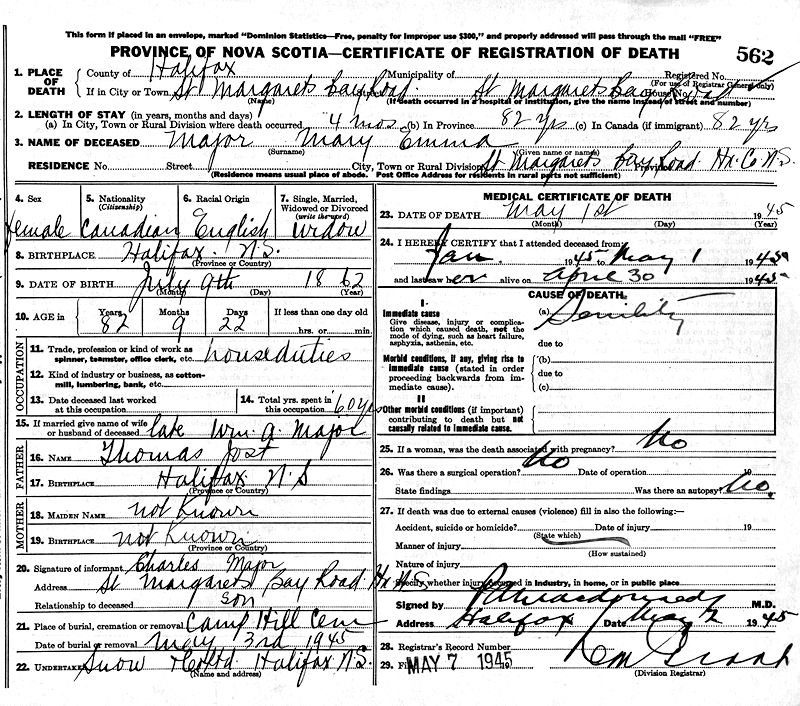 This form if placed in an envelope, marked "Dominion Statistics—Free, penalty for improper use $300," and properly addressed will pass through the mail "FREE"
PROVINCE OF NOVA SCOTIA—CERTIFICATE OF REGISTRATION OF DEATH 562
1. PLACE OF DEATH County of Halifax Municipality of Registered No.
(For use of Registrar General only)
If in City or Town St Margarets Bay Road St Margarets Bay House No.
(Name) (If death occurred in a hospital or institution, give the name instead of street and number)
2. LENGTH OF STAY (in years, months and days)
(a) In City, Town or Rural Division where death occurred 4 mos (b) In Province 82 yrs (c) In Canada (if immigrant) 82 yrs
3. NAME OF DECEASED Major Mary Emma
(Surname) (Given name or names)
RESIDENCE No. Street City, Town or Rural Division St Margarets Bay Road Province Hx. Co N.S.
(Residence means usual place of abode. Post Office Address for residents in rural parts not sufficient)
4. Sex 5. Nationality (Citizenship) 6. Racial Origin 7. Single, Married, Widowed or Divorced (write the word)
female Canadian English Widow
8. BIRTHPLACE Halifax N.S.
(Province or Country)
9. DATE OF BIRTH July 9th 1862
(Month) (Day) (Year)
10. AGE in Years Months Days If less than one day old
82 9 22 hrs. or min.
OCCUPATION
11. Trade, profession or kind of work as spinner, teamster, office clerk, etc. house duties
12. Kind of industry or business, as cotton-mill, lumbering, bank, etc.
13. Date deceased last worked at this occupation 14. Total yrs. spent in this occupation 60 yrs
15. If married give name of wife or husband of deceased late Wm. A. Major
FATHER
16. NAME Thomas Jost
17. BIRTHPLACE Halifax N.S
(Province or Country)
MOTHER
18. MAIDEN NAME not Known
19. BIRTHPLACE not Known
(Province or Country)
20. Signature of informant Charles Major
Address St Margarets Bay Road Hx N.S.
Relationship to deceased Son
21. Place of burial, cremation or removal Camp Hill Cem
Date of burial or removal May 3rd 1945
22. Undertaker Snow & Co Ltd. Halifax N.S.
(Name and address)
MEDICAL CERTIFICATE OF DEATH
23. DATE OF DEATH May 1st 1945
(Month) (Day) (Year)
24. I HEREBY CERTIFY that I attended deceased from
Jan 1945 to May 1 1945
and last saw her alive on April 30 1945
CAUSE OF DEATH
I.
Immediate cause (a) Senility
Give disease, injury or complication which caused death, not the mode of dying, such as heart failure, asphyxia, asthenia, etc.
due to
Morbid conditions, if any, giving rise to immediate cause (stated in order proceeding backwards from immediate cause).
(b)
due to
(c)
II
Other morbid conditions (if important) contributing to death but not causally related to immediate cause.
25. If a woman, was the death associated with pregnancy? No
26. Was there a surgical operation? No Date of operation 19
State findings Was there an autopsy? No.
27. If death was due to external causes (violence) fill in also the following:—
Accident, suicide or homicide? Date of injury 19
(State which)
Manner of injury
(How sustained)
Nature of injury
Specify whether injury occurred in industry, in home, or in public place
Signed by M.D.
Address Halifax Date May 2 1945
28. Registrar's Record Number
29. Filed MAY 7 1945
(Division Registrar)